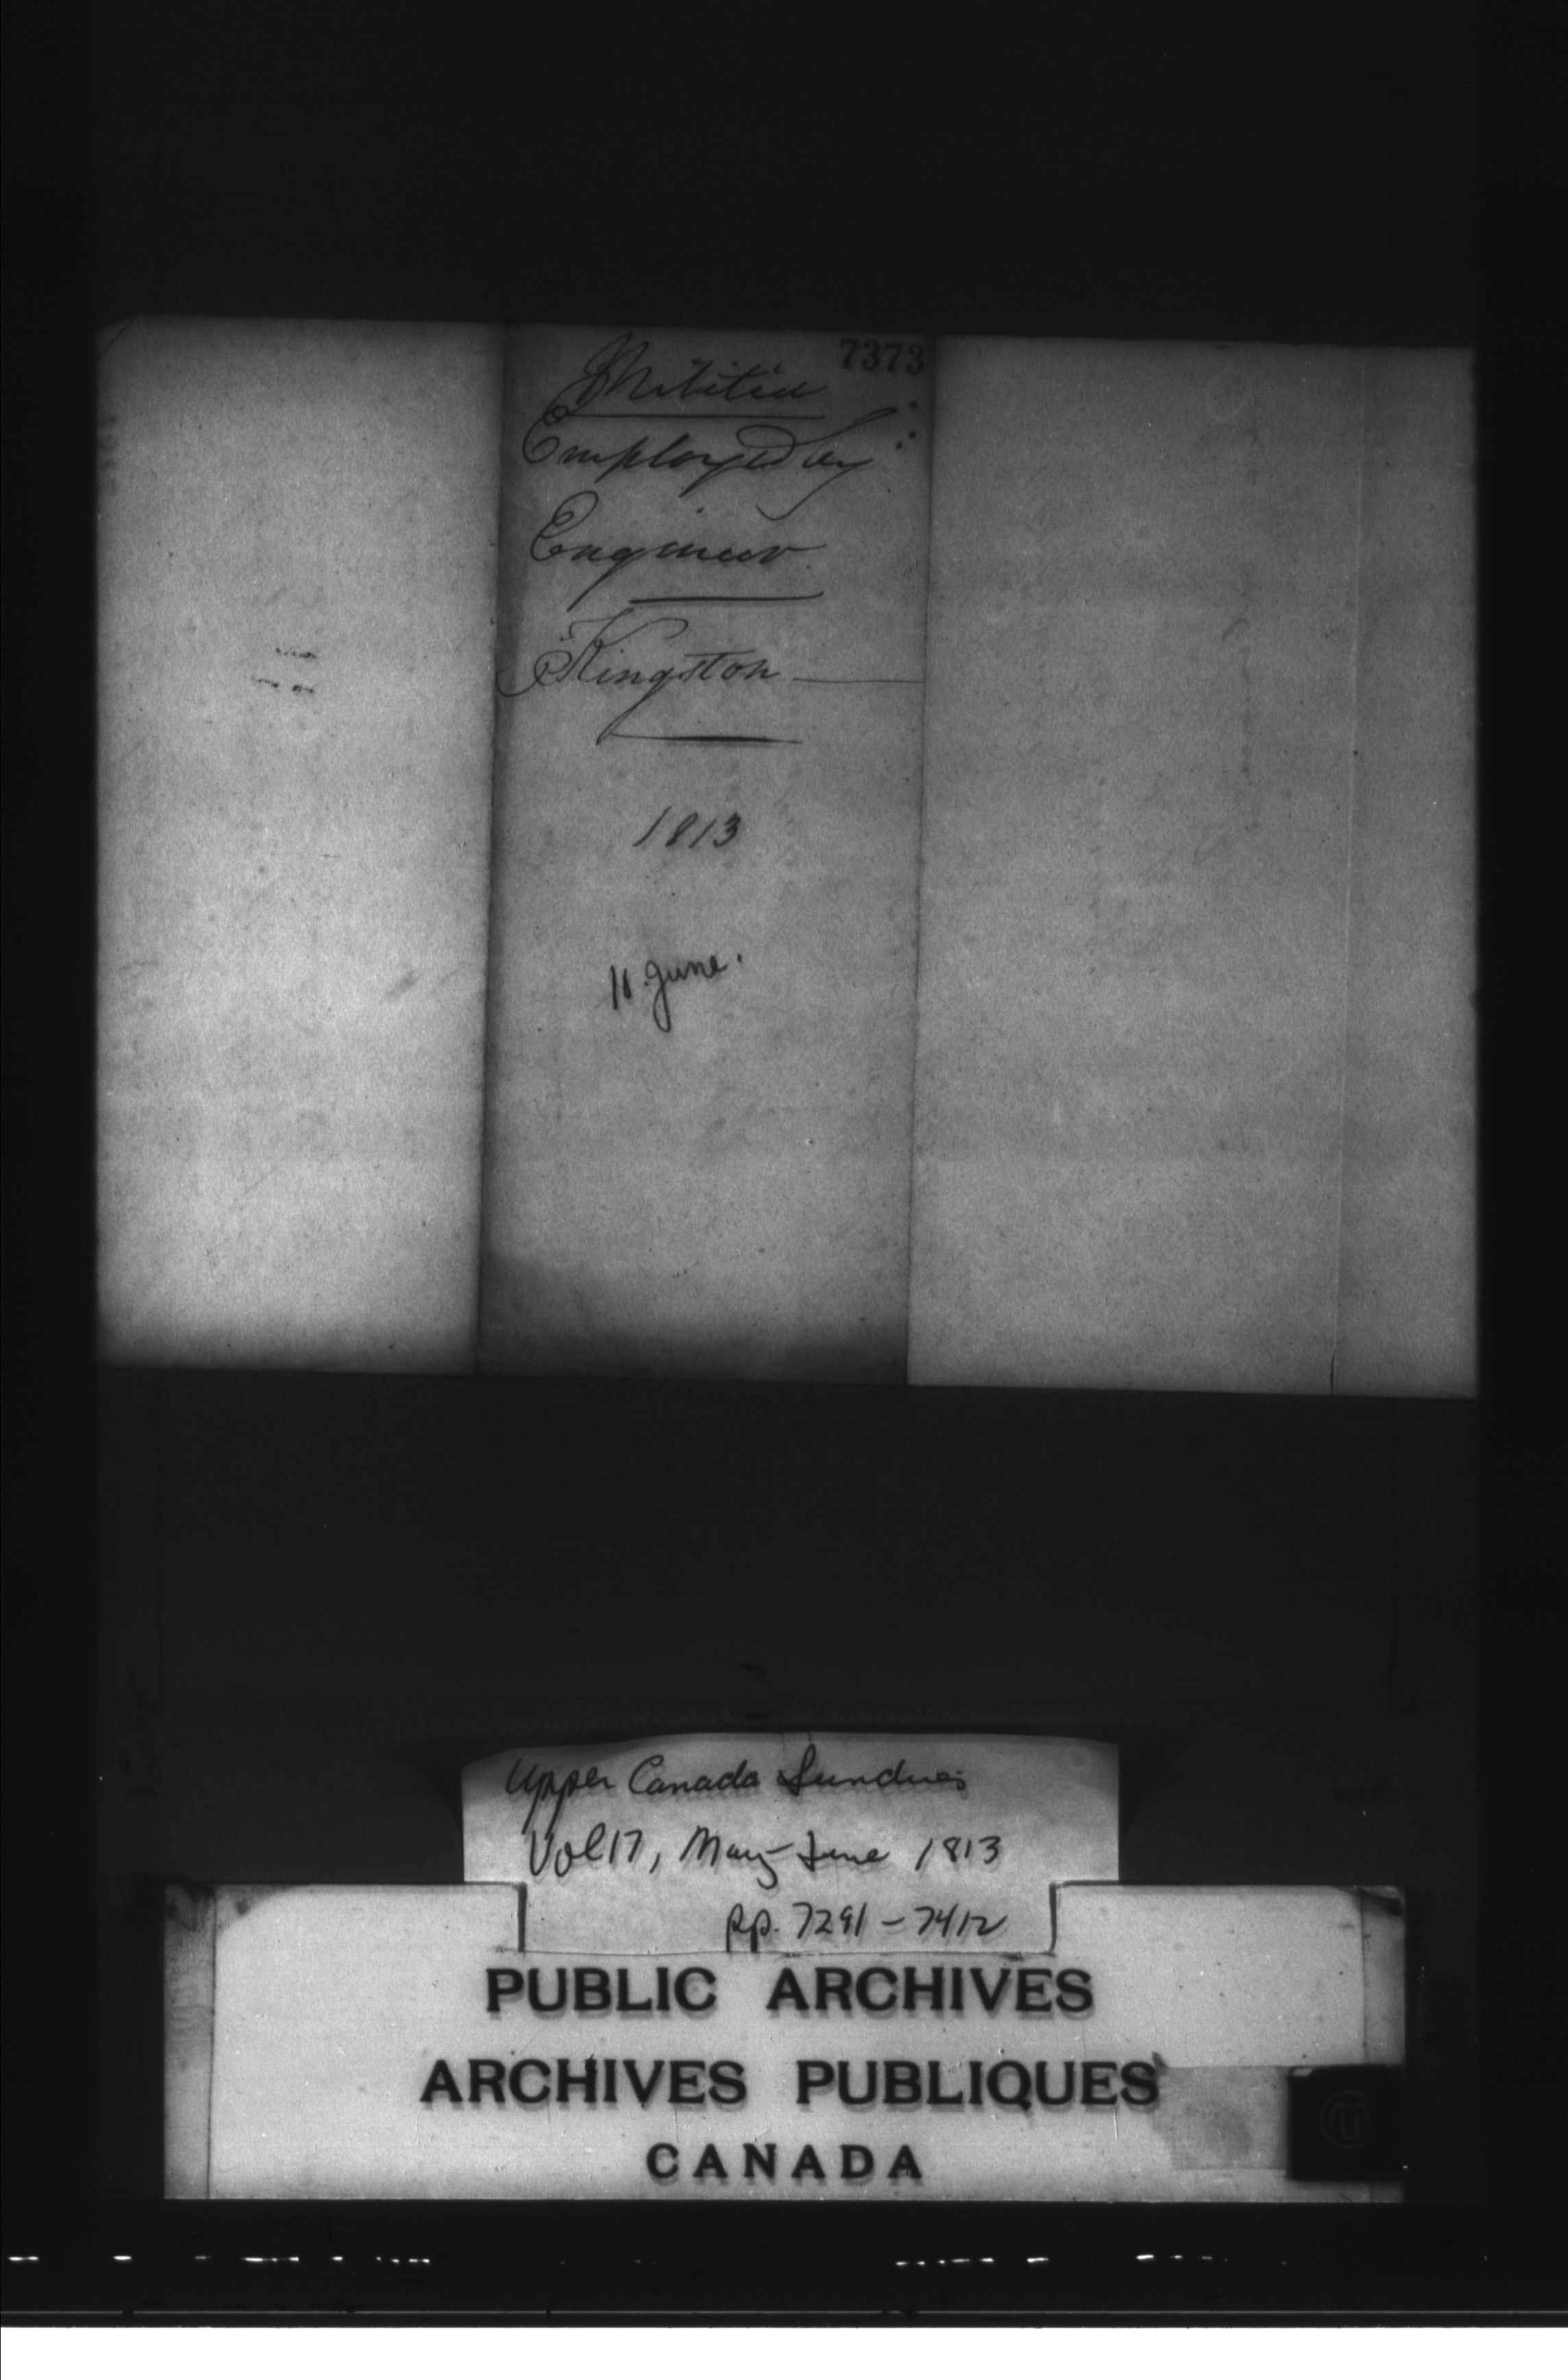 7373
Militia
Employed by
Engineer
Kingston
1813
11 June.
Upper Canada Sundries
Vol 17, May-June 1813
pp. 7291-7412
PUBLIC ARCHIVES
ARCHIVES PUBLIQUES
CANADA